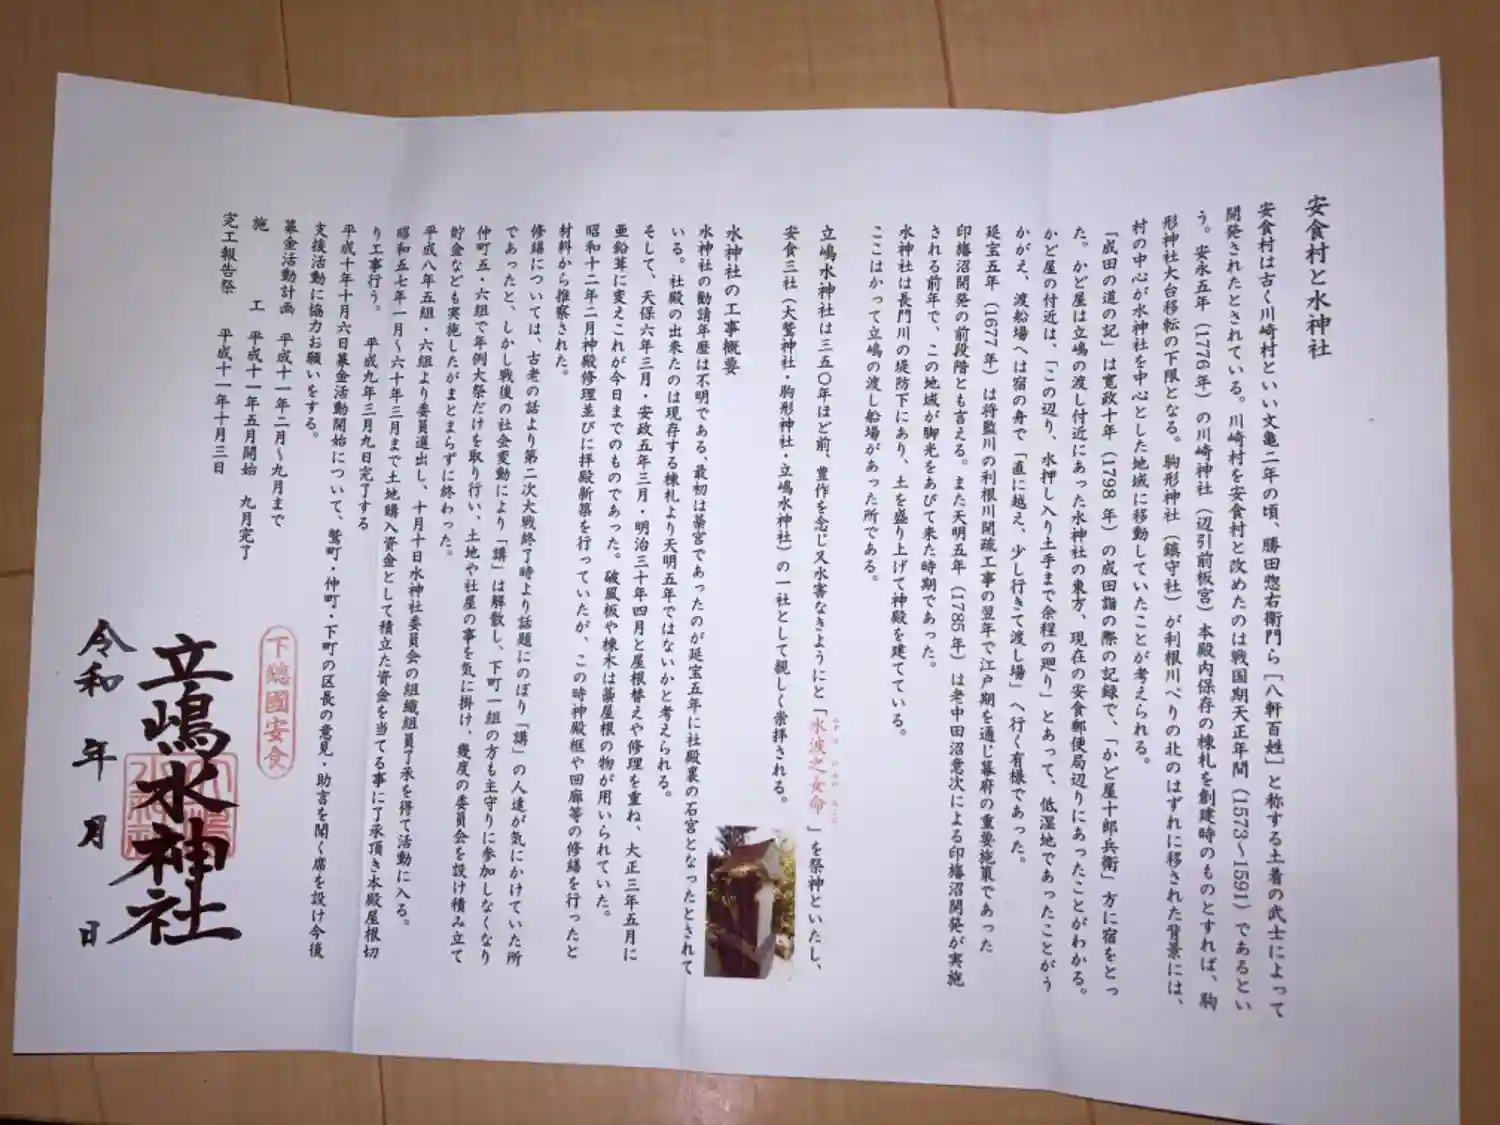 安食村と水神社
安食村は古く川崎村といい文亀二年の頃、勝田惣右衛門ら「八軒百姓」と称する土着の武士によって
開発されたとされている。川崎村を安食村と改めたのは戦国期天正年間（1573～1591）であるとい
う。安永五年（1776年）の川崎神社（辺引前板宮）本殿内保存の棟札を創建時のものとすれば、駒
形神社大台移転の下限となる。駒形神社（鎮守社）が利根川べりの北のはずれに移された背景には、
村の中心が水神社を中心とした地域に移動していたことが考えられる。
「成田の道の記」は寛政十年（1798年）の成田詣の際の記録で、「かど屋十郎兵衛」方に宿をとっ
た。かど屋は立嶋の渡し付近にあった水神社の東方、現在の安食郵便局辺りにあったことがわかる。
かど屋の付近は、「この辺り、水押し入り土手まで余程の廻り」とあって、低湿地であったことがう
かがえ、渡船場へは宿の舟で「直に越え、少し行きて渡し場」へ行く有様であった。
延宝五年（1677年）は将監川の利根川開疏工事の翌年で江戸期を通じ幕府の重要施策であった
印旛沼開発の前段階とも言える。また天明五年（1785年）は老中田沼意次による印旛沼開発が実施
される前年で、この地域が脚光をあびて来た時期であった。
水神社は長門川の堤防下にあり、土を盛り上げて神殿を建てている。
ここはかって立嶋の渡し船場があった所である。
立嶋水神社は三五〇年ほど前、豊作を念じ又水害なきようにと「水波之女命」を祭神といたし、
安食三社（大鷲神社・駒形神社・立嶋水神社）の一社として親しく崇拝される。
水神社の工事概要
水神社の勧請年歴は不明である、最初は藁宮であったのが延宝五年に社殿裏の石宮となったとされて
いる。社殿の出来たのは現存する棟札より天明五年ではないかと考えられる。
そして、天保六年三月・安政五年三月・明治三十年四月と屋根替えや修理を重ね、大正三年五月に
亜鉛葺に変えこれが今日までのものであった。破風板や棟木は藁屋根の物が用いられていた。
昭和十二年二月神殿修理並びに拝殿新築を行っていたが、この時神殿框や回廊等の修繕を行ったと
材料から推察された。
修繕については、古老の話より第二次大戦終了時より話題にのぼり「講」の人達が気にかけていた所
であったと、しかし戦後の社会変動により「講」は解散し、下町一組の方も主守りに参加しなくなり
仲町五・六組で年例大祭だけを取り行い、土地や社屋の事を気に掛け、幾度の委員会を設け積み立て
貯金なども実施したがまとまらずに終わった。
平成八年五組・六組より委員選出し、十月十日水神社委員会の組織組員了承を得て活動に入る。
昭和五七年一月～六十年三月まで土地購入資金として積立た資金を当てる事に了承頂き本殿屋根切
り工事行う。 平成九年三月九日完了する
平成十年十月六日募金活動開始について、鷲町・仲町・下町の区長の意見・助言を聞く席を設け今後
支援活動に協力お願いをする。
募金活動計画 平成十一年二月～九月まで
施工 平成十一年五月開始 九月完了
完工報告祭 平成十一年十月三日
下總國安食
立嶋水神社
令和 年 月 日